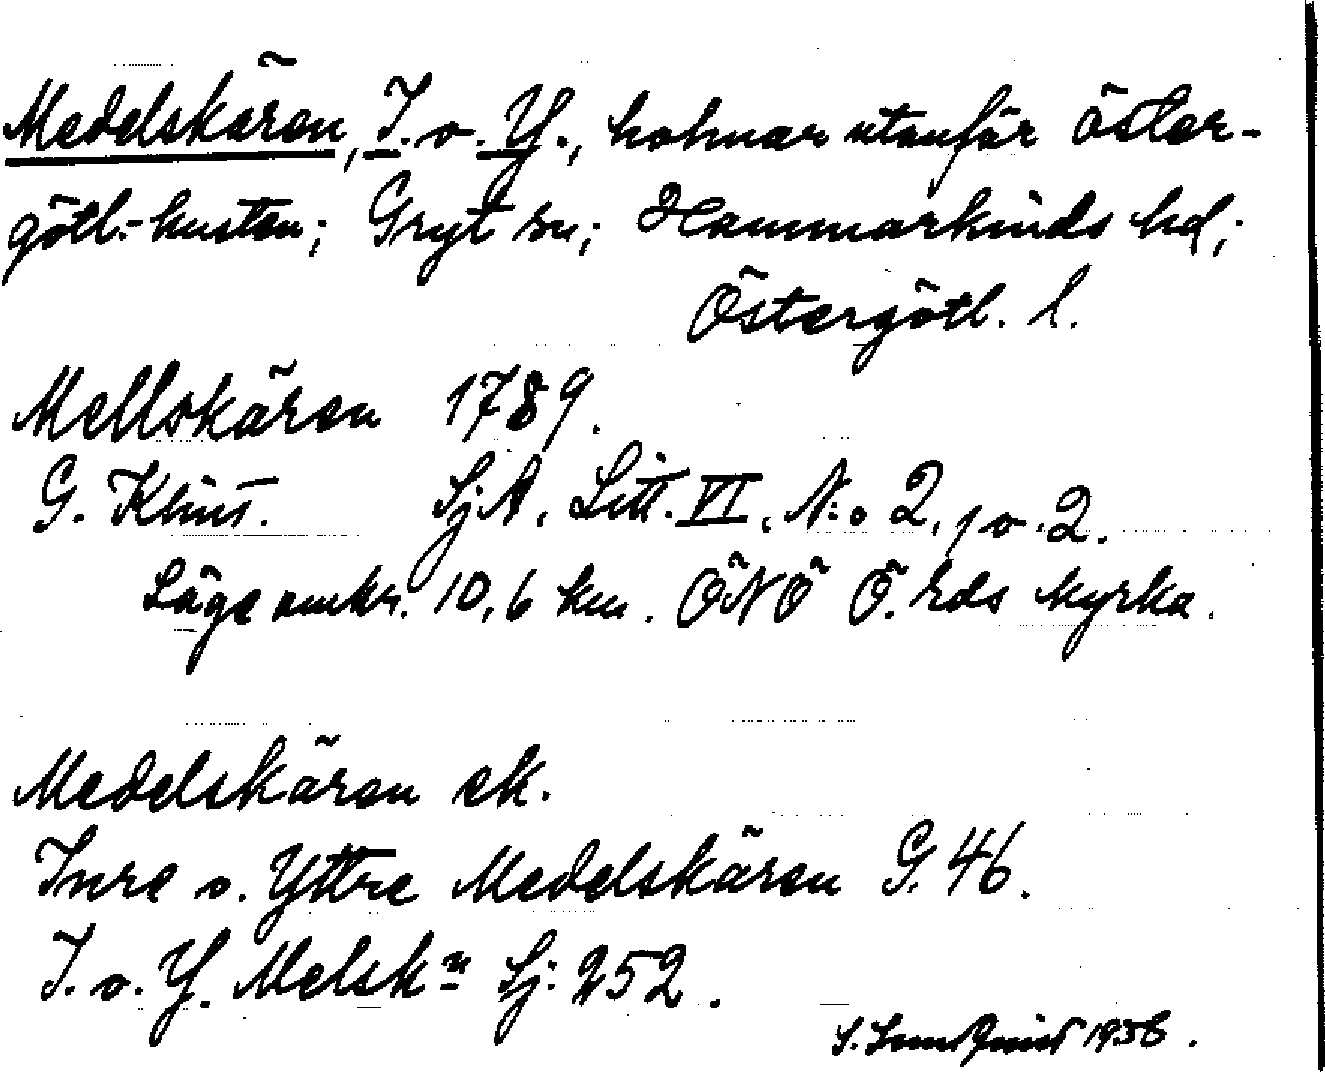 Medelskären, I. o. Y., holmar utanför Öster-
götl.-kusten; Gryt sn; Hammarkinds hd;
Östergötl. l.
Mellskären 1789.
G. Klint. SjA, Litt. VI. N:o 2, 1 o. 2.
Läge omkr. 10,6 km. ÖNÖ Ö. Eds kyrka.
Medelskären ek.
Inre o. Yttre Medelskären G. 46.
I. o. Y. Melskn Sj: 252.
S. Sundquist 1936.